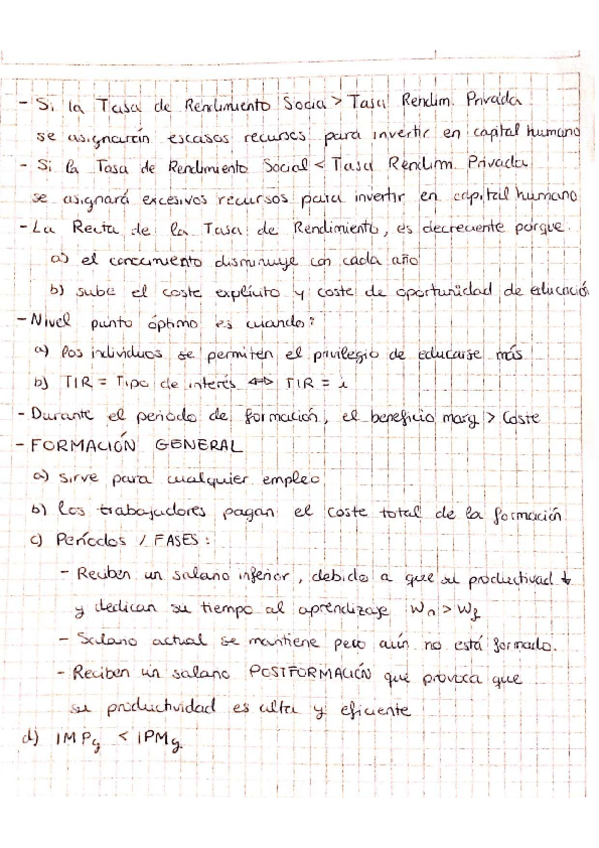 - Si la Tasa de Rendimiento Social > Tasa Rendim. Privada
se asignarán escasos recursos para invertir en capital humano
- Si la Tasa de Rendimiento Social < Tasa Rendim. Privada
se asignará excesivos recursos para invertir en capital humano
- La Recta de la Tasa de Rendimiento, es decreciente porque.
a) el conocimiento disminuye con cada año
b) sube el coste explícito y coste de oportunidad de educació
- Nivel punto óptimo es cuando:
a) los individuos se permiten el privilegio de educarse más
b) TIR = Tipo de interés ⇔ TIR = i
- Durante el periodo de formación, el beneficio marg > Coste
- FORMACIÓN GENERAL
a) sirve para cualquier empleo
b) los trabajadores pagan el coste total de la formación
c) Períodos / FASES:
- Reciben un salario inferior, debido a que su productivad ↓
y dedican su tiempo al aprendizaje Wn > Wf
- Salario actual se mantiene pero aún no está formado.
- Reciben un salario POSTFORMACIÓN que provoca que
su productividad es alta y eficiente
d) IMPg < IPMg